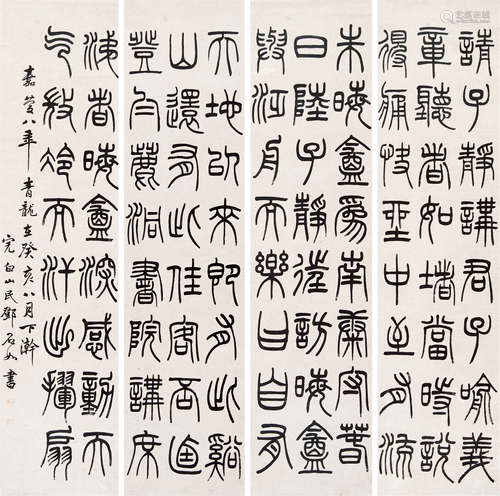 請子靜講君子喻義
章聽者如堵當時說
得痛快坐中至有流
朱晦盦為南康守春
日陸子靜往訪晦盦
與泛舟而樂曰自有
天地以來即有此谿
山還有此佳客否迺
登白鹿洞書院講席
涕者晦盦深感動天
气微冷而汗出揮扇
嘉慶八年 青龍在癸亥八月下澣
完白山民鄧石如書